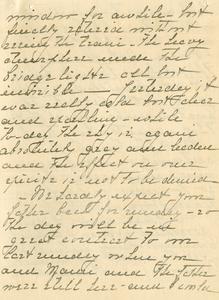 window for awhile - but
finally retired without
seeing the train. The heavy
atmosphere made the
bridge lights all but
invisible - Yesterday it
was really cold but clear
and sparkling - while
to-day the sky is again
absolutely grey and leaden
and the effect on our
spirits is not to be denied
- We hardly expect your
letter back for Sunday - so
the day will be in
great contrast to me
last Sunday when you
and and the
were still here - and